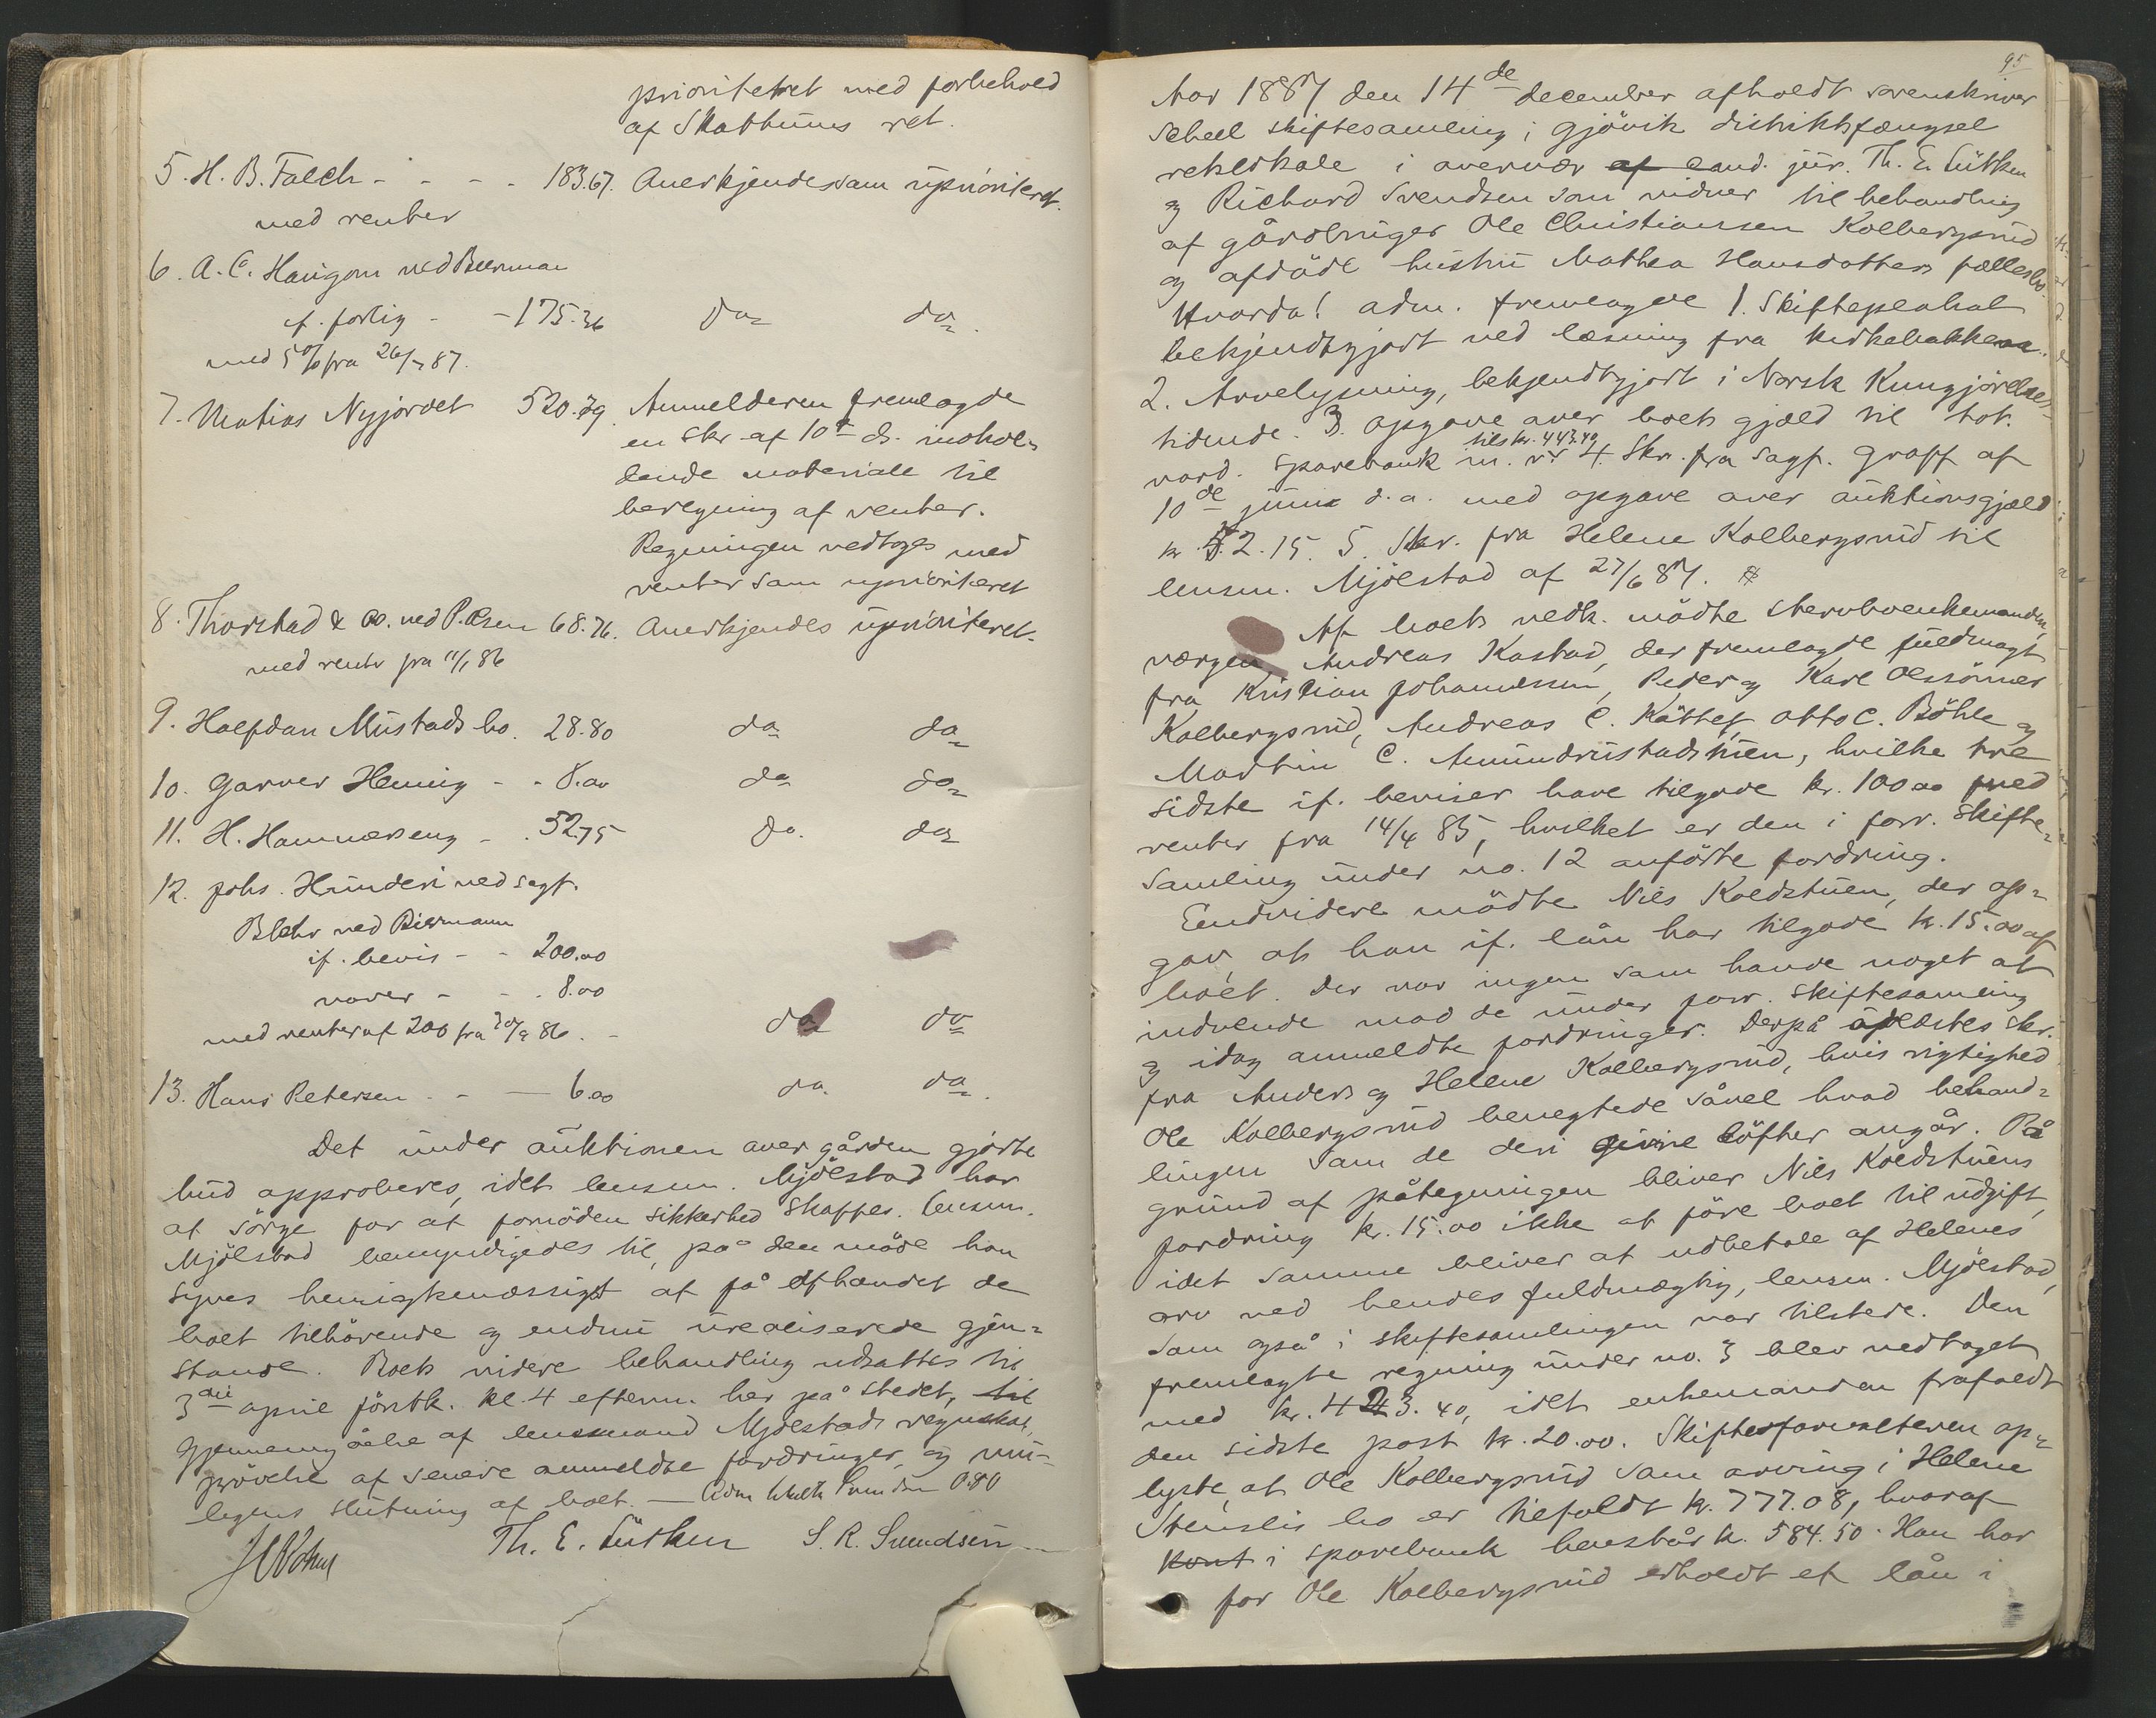 prioritetret med forbehold
af Skatthuus ret.
5. H. B. Falch - - - - 183.67. Anerkjendes som uprioriteret.
med renter
6. A. C. Haugom ved Beerman
if. forlig - - 175.36 do do.
med 5% fra 26/7 87.
7. Matias Nyjordet 520.79. Anmelderen fremlagde
en skr. af 10de ds. inehol-
dende materiale til
beregning af renter.
Regningen vedtoges med
renter som uprioriteret
8. Thorstad & Co. ved P. Olsen 68.76. Anerkjendes uprioriteret.
med rente fra 11/1 86
9. Halfdan Mustads bo. 28.80 do do
10. Garver Hennig - - 8.00 do do
11. H. Hamnæseng - . 52.75 do. do
12. Johs. Hunderi ved sagf.
Blehr ved Biermann
if. bevis - - 200.00
varer - - . 8.00
med renter af 200 fra 20/9 86. - do do
13. Hans Petersen . - — 6.00 do. do.
Det under auktionen over gården gjorte
bud approberes, idet lensm. Mjölstad har
at sörge for at fornöden sikkerhed skaffes. Lensm.
Mjölstad bemyndigedes til, på den måde han
synes hensigtsmæssigst at få afhændet de
boet tilhörende og endnu urealiserede gjen-
stande. Boets videre behandling udsattes til
3die april förstk. kl. 4 efterm. her på stedet, til
Gjennemgåelse af lensmand Mjölstads regnskab,
prövelse af senere anmeldte fordringer og mu-
ligens slutning af boet. —
Th. E. Lütken S. R. Svendsen
95
Aar 1887 den 14de december afholdt sorenskriver
Scheel skiftesamling i Gjövik distriktsfængsel
retslokale i overvær af cand. jur. Th. E. Lütken
og Richard Svendsen som vidner til behandling
af gårdbruger Ole Christiansen Kolbergsrud
og afdöde hustru Mathea Hansdatters fællesbo.
Hvorda! adm. fremlagde 1. Skifteplakat
bekjendtgjort ved læsning fra kirkebakken.
2. Arvelysning, bekjendtgjort i Norsk Kungjörelses-
tidende. 3. opgave over boets gjæld til Tot.
tils kr. 443.40
vard. Sparebank m. v. 4. Skr. fra sagf. Graff af
10de juni d. a. med opgave over auktionsgjæld
kr. 52.15. 5. Skr. fra Helene Kolbergsrud til
lensm. Mjölstad af 27/6 87.
Af boets vedk. mödte stervboenkemanden,
værgen Andreas Kastad, der fremlagde fuldmagt
fra Kristian Johannessen, Peder og Karl Olssönner
Kolbergsrud, Andreas C. Kåttet, Otto C. Böhle og
Martin C. Amundrustadstuen, hvilke tre
sidste if. beviser have tilgode kr. 100.00 med
renter fra 14/4 85, hvilket er den i forr. Skifte-
samling under no. 12 anförte fordring.
Endvidere mödte Nils Koldstuen, der op-
gav, at han if. lån har tilgode kr. 15.00 af
boet. Der var ingen som havde noget at
indvende mod de under forr. skiftesamling
og idag anmeldte fordringer. Derpå oplæstes skr.
fra Anders og Helene Kolbergsrud, hvis rigtighed
Ole Kolbergsrud benegtede såvel hvad behand-
lingen som de deri givne löfter angår. På
grund af påtegningen bliver Nils Koldstuens
fordring kr. 15.00 ikke at före boet til udgift,
idet samme bliver at udbetale af Helenes
arv ved hendes fuldmægtig, lensm. Mjölstad,
som også i skiftesamlingen var tilstede. Den
fremlagte regning under no. 3 blev vedtaget
med kr. 423.40, idet enkemanden frafaldt
den sidste post kr. 20.00. Skifteforvalteren op-
lyste, at Ole Kolbergsrud som arving i Helene
Stenslis bo er tilfaldt kr. 777.08, hvoraf
kont i sparebank henstår kr. 584.50. Han har
for Ole Kolbergsrud erholdt et lån i